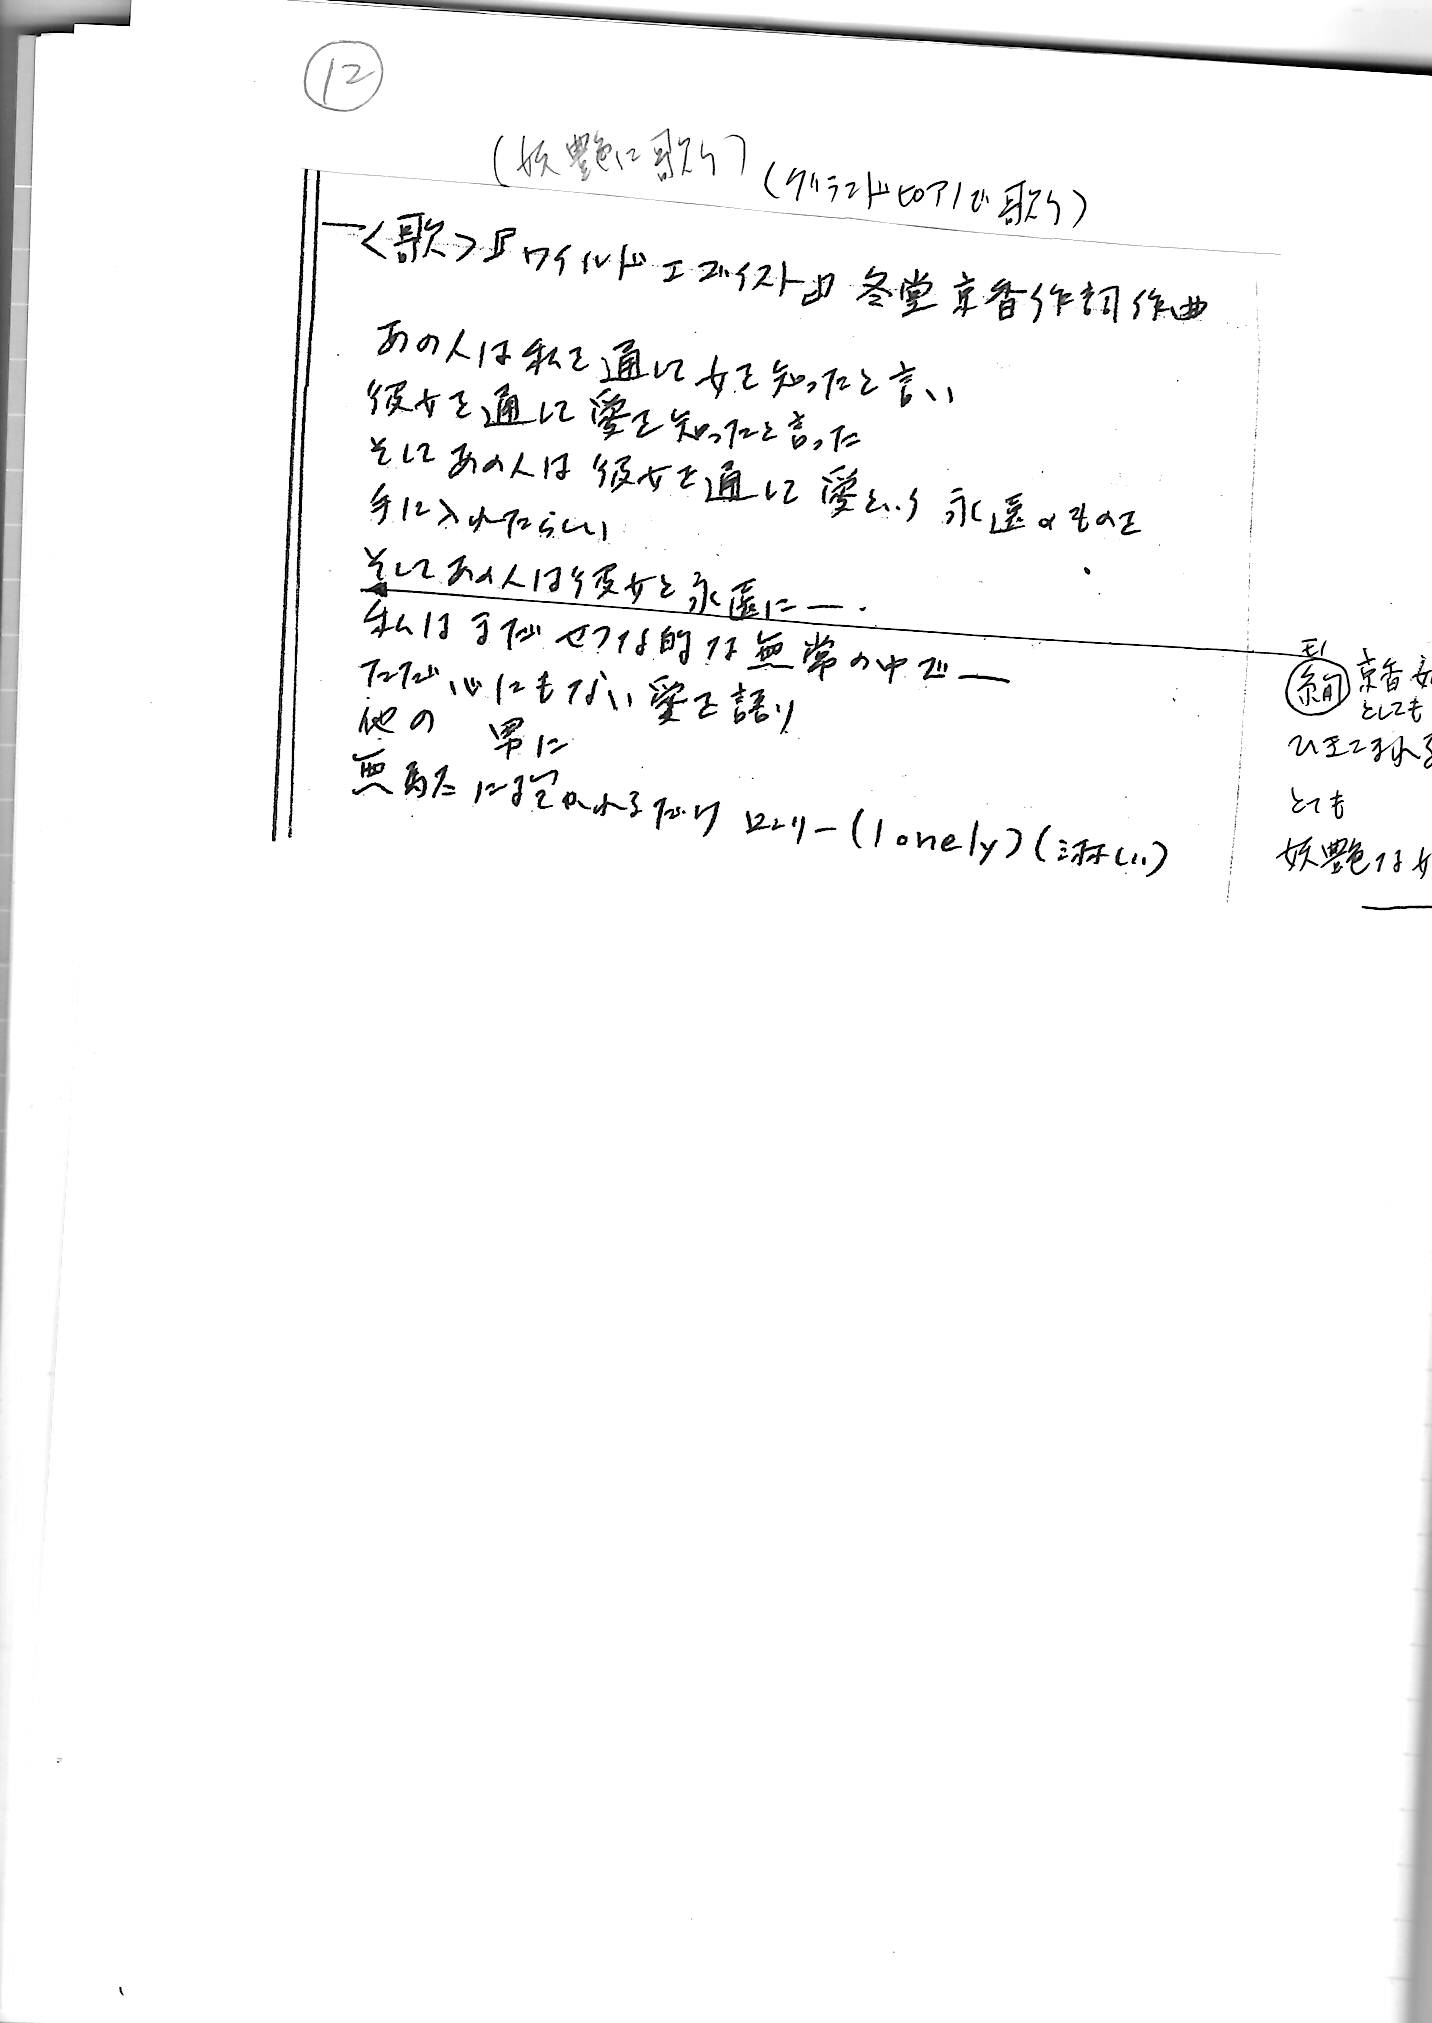 12
(妖艶に歌う)
(グランドピアノで歌う)
<歌>『ワイルドエゴイスト』冬堂京香作詞作曲
あの人は私を通して女を知ったと言い
彼女を通して愛を知ったと言った
そしてあの人は彼女を通して愛という永遠のものを
手に入れたらしい
そしてあの人は彼女と永遠に―.
私はまだせつな的な無常の中で―
ただ心にもない愛を語り
他の 男に
無駄に抱かれるだけ ロンリー(lonely)(淋しい)
絢 京香
としても
ひきこまれる
とても
妖艶な女